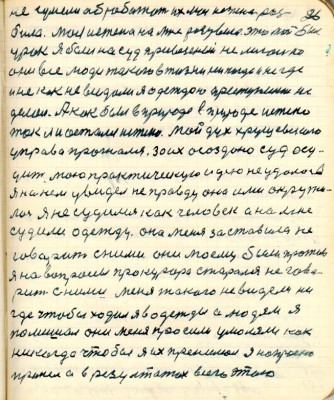 не сумели обработат их моя истена раз- 26
била. Моя истена на мне разувала это мой был
урок я был на суд привезеной не мало но
они все люди такого в тизни не нигде
и не как не видали я одеждою преступлении не
делал. А как был в природе в природе истено
так я и остался истено. Мой дух хрущевского
управа прогнал, за их создано суд осу-
дит, мою практическую идею не удалось
я на нем увидел не правду она или окружи-
лас я не судимся как человек а на мне
судили одежду. она меня заставила не
говорит с ними они моему были против
я на вопросы прокурора старался не гово-
рит с ними меня такого не видели ни
где чтобы ходил в одежды а людем я
помишал они меня просили умоляли как
никогда чтобы я их принимал я напрасно
принел а в резултатах всего этого